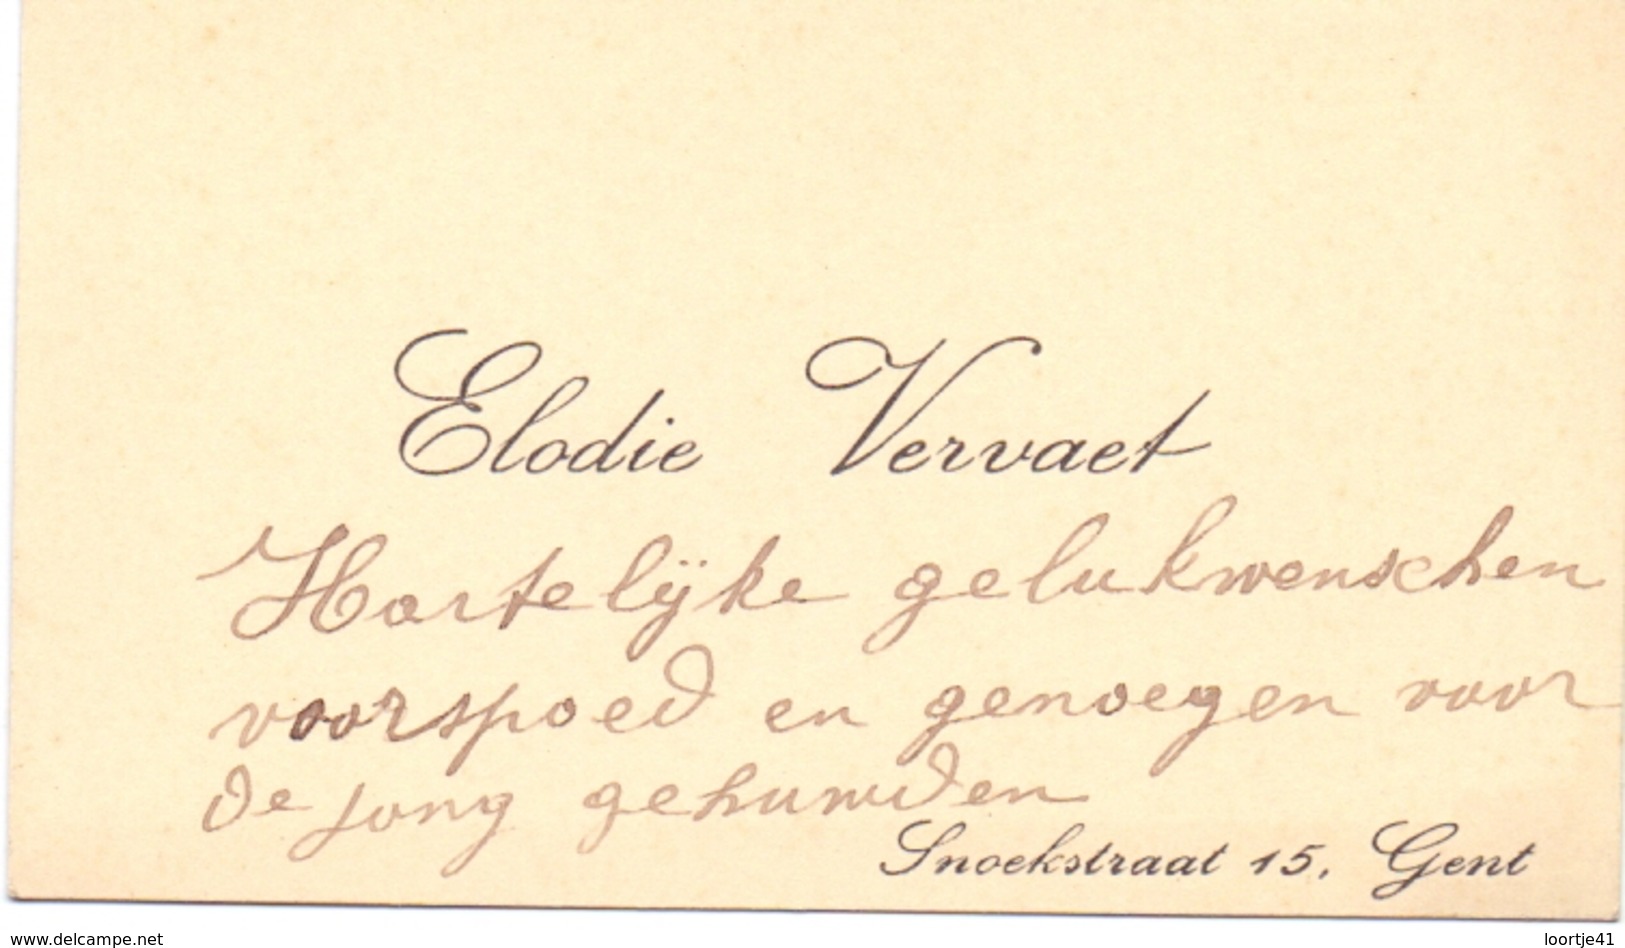 Elodie Vervaet
Hartelÿke gelukwenschen
voorspoed en genoegen voor
de jong gehuwden
Snoekstraat 15, Gent
www.delcampe.net
loortje41